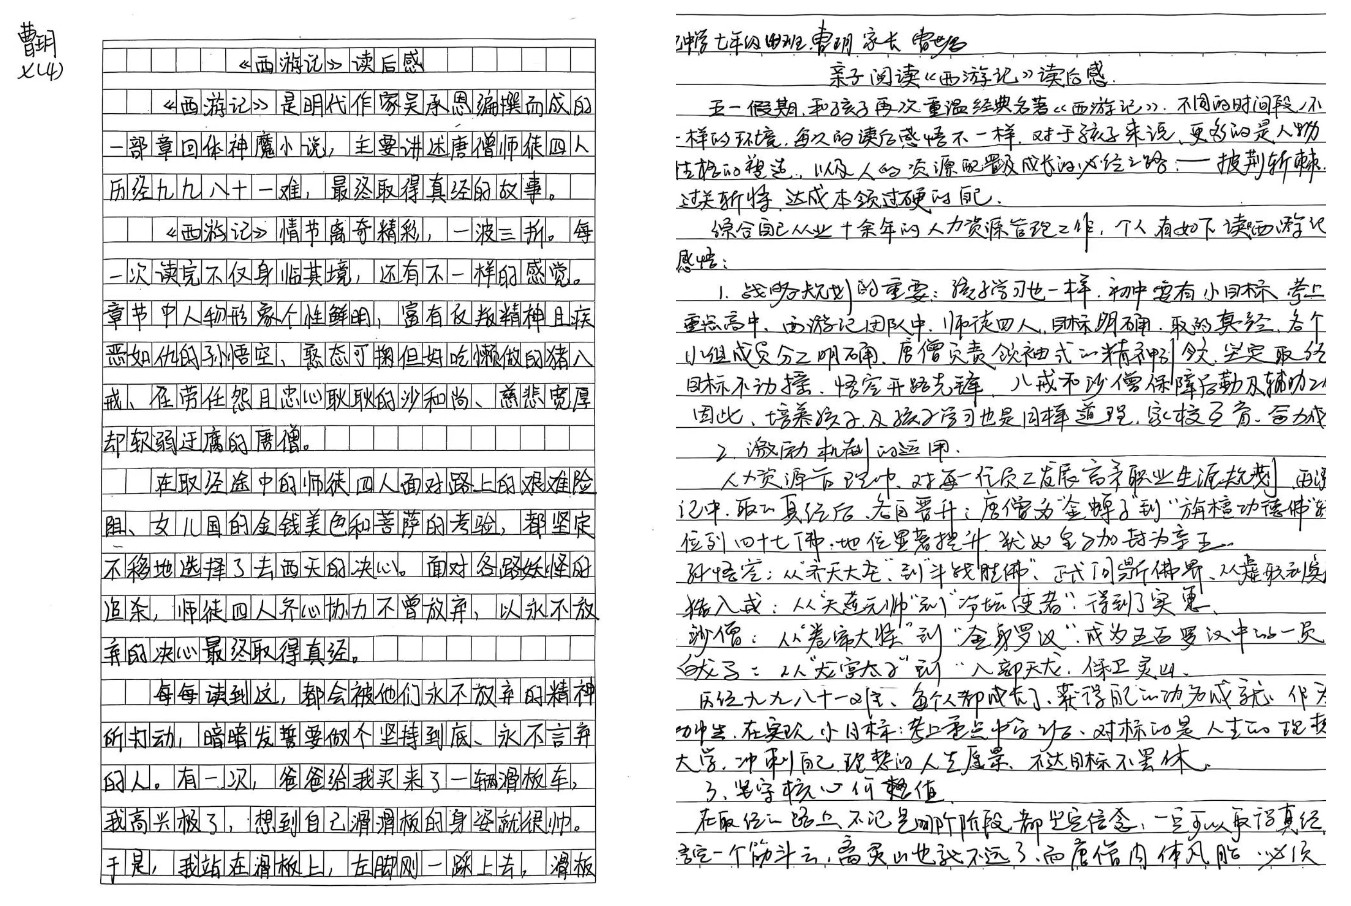 曹玥
X(4)
《西游记》读后感
《西游记》是明代作家吴承恩编撰而成的
一部章回体神魔小说，主要讲述唐僧师徒四人
历经九九八十一难，最终取得真经的故事。
《西游记》情节离奇精彩，一波三折。每
一次读完不仅身临其境，还有不一样的感觉。
章节中人物形象个性鲜明，富有反叛精神且疾
恶如仇的孙悟空、憨态可掬但好吃懒做的猪八
戒、任劳任怨且忠心耿耿的沙和尚、慈悲宽厚
却软弱迂腐的唐僧。
在取经途中的师徒四人面对路上的艰难险
阻、女儿国的金钱美色和菩萨的考验，都坚定
不移地选择了去西天的决心。面对各路妖怪的
追杀，师徒四人齐心协力不曾放弃，以永不放
弃的决心最终取得真经。
每每读到这，都会被他们永不放弃的精神
所打动，暗暗发誓要做个坚持到底、永不言弃
的人。有一次，爸爸给我买来了一辆滑板车，
我高兴极了，想到自己滑滑板的身姿就很帅。
于是，我站在滑板上，左脚刚一踩上去，滑板
七年级 班 曹玥 家长 曹
亲子阅读《西游记》读后感
五一假期，和孩子再次重温经典名著《西游记》。不同的时间段，不
一样的环境，每次的读后感悟不一样，对于孩子来说，更多的是人物
性格的塑造，以及人的资源配置及成长的必经之路——披荆斩棘
过关斩将，达成本领过硬的自己.
综合自己从业十余年的人力资源管理工作，个人有如下读西游记
感悟：
1. 战略规划的重要：孩子学习也一样，初中要有小目标，考上
重点高中，西游记团队中，师徒四人，目标明确，取的真经，各个
小组成员分工明确，唐僧负责领袖式的精神引领，坚定取经
目标不动摇，悟空开路先锋，八戒和沙僧保障后勤及辅助工
因此，培养孩子及孩子学习也是同样道理，家校互育，合力成
2. 激励机制的运用
人力资源管理中，对每一位员工发展高弄职业生涯规划，西游
记中，取的真经后，各自晋升：唐僧为“金蝉子”到“旃檀功德佛”
位列四十七佛，地位显著提升，
孙悟空：从“齐天大圣”到“斗战胜佛”，正式问鼎佛界，从虚职到实
猪八戒：从“天蓬元帅”到“净坛使者”，得到了实惠.
沙僧：从“卷帘大将”到“金身罗汉”，成为五百罗汉中的一员
白龙马：从“龙宫太子”到“八部天龙，保卫灵山.
历经九九八十一难，每个人都成长了，获得自己的功名成就，作为
初中生，在实现小目标：考上重点中学之后，对标的是人生的理想
大学，冲刺自己理想的人生愿景，不达目标不罢休。
3、坚守核心价值
在取经的路上，不论是哪个阶段，都坚定信念，一定可以取得真经
一个筋斗云，离灵山也就不远了，而唐僧肉体凡胎，必须